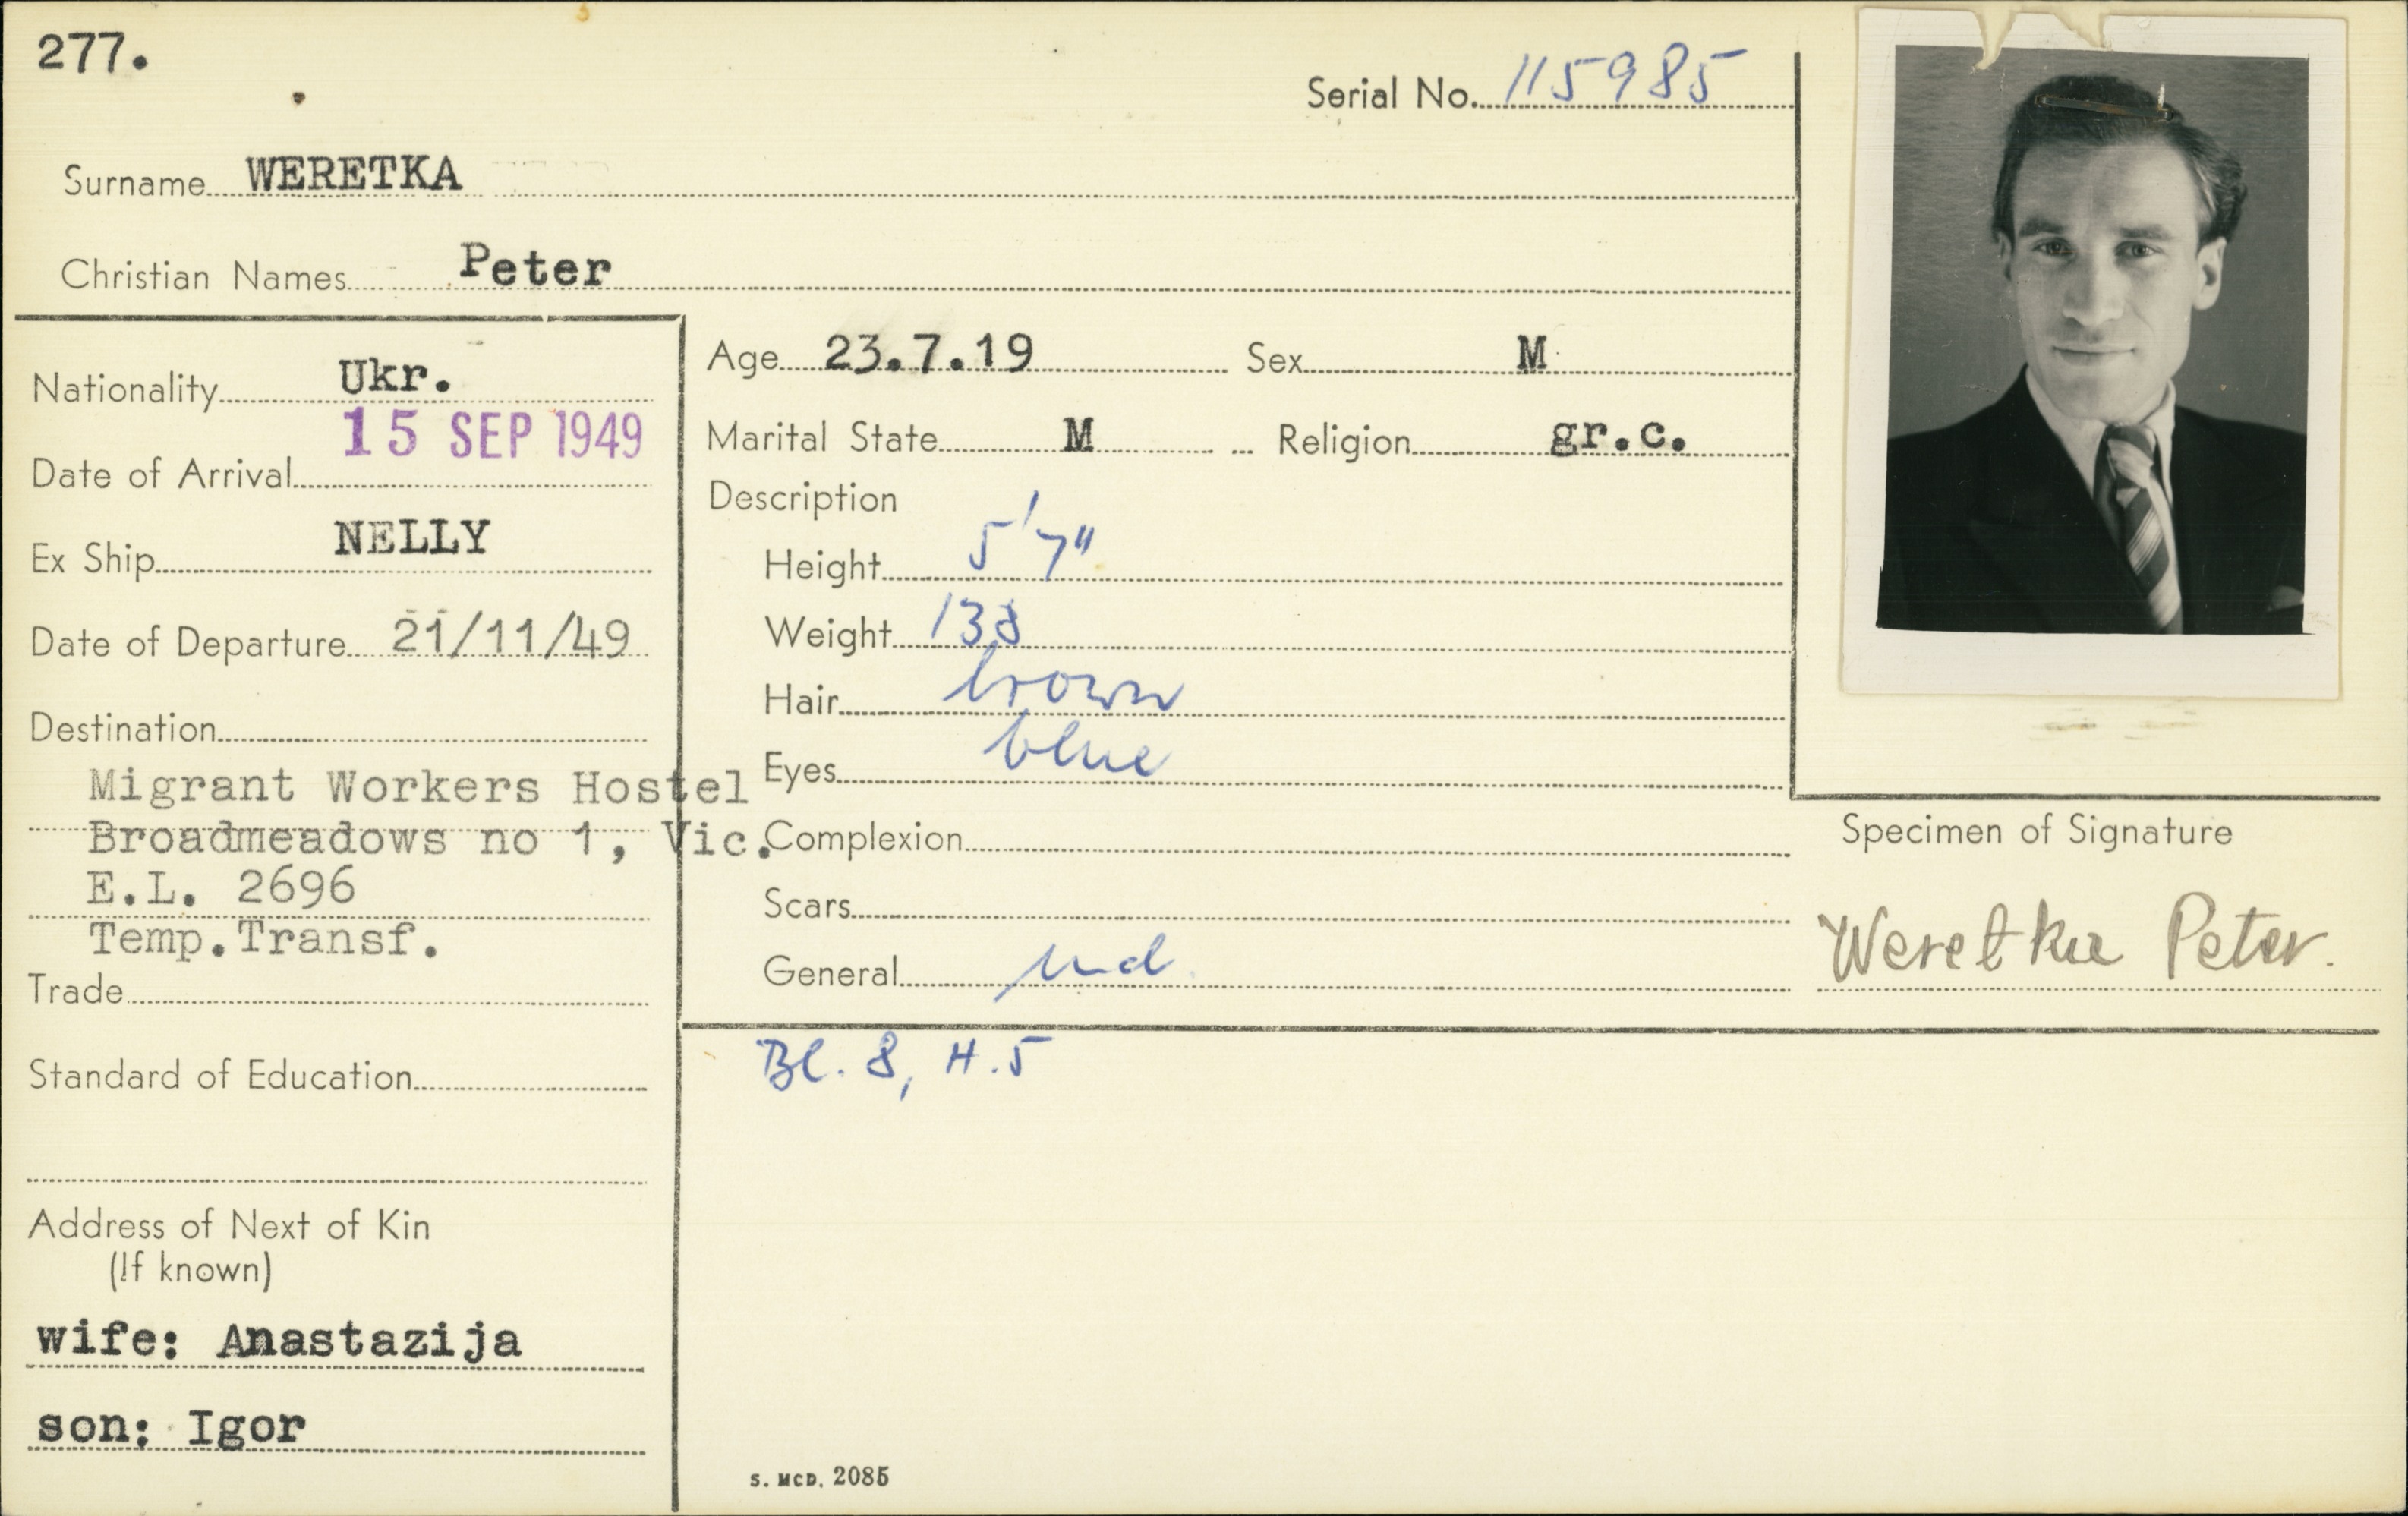 277.
Serial No. 115985
Surname WERETKA
Christian Names Peter
Nationality Ukr.
Date of Arrival 15 SEP 1949
Ex Ship NELLY
Date of Departure 21/11/49
Destination
Migrant Workers Hostel
Broadmeadows no 1, Vic.
E.L. 2696
Temp.Transf.
Trade
Standard of Education
Address of Next of Kin
(If known)
wife: Anastazija
son: Igor
Age 23.7.19 Sex M
Marital State M Religion gr.c.
Description
Height 5'7"
Weight 138
Hair brown
Eyes blue
Complexion
Scars
General
Bl. 8, H.5
S. MCD. 2085
Specimen of Signature
Weretka Peter.